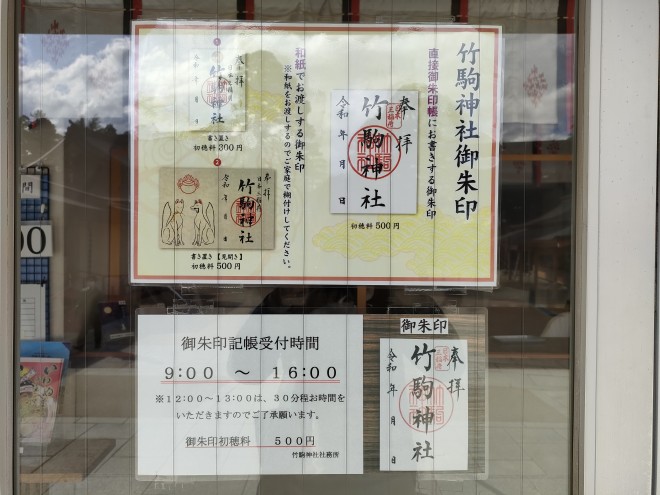 竹駒神社御朱印
直接御朱印帳にお書きする御朱印
奉拝
竹駒神社
令和 年 月 日
初穂料500円
和紙でお渡しする御朱印
※和紙をお渡しするのでご家庭で糊付けしてください。
1
奉拝
竹駒神社
令和 年 月 日
書き置き
初穂料300円
2
奉拝
竹駒神社
令和 年 月 日
書き置き【見開き】
初穂料500円
御朱印記帳受付時間
9:00 ～ 16:00
※12:00～13:00は、30分程お時間を
いただきますのでご了承願います。
御朱印初穂料 500円
竹駒神社社務所
御朱印
奉拝
竹駒神社
令和 年 月 日